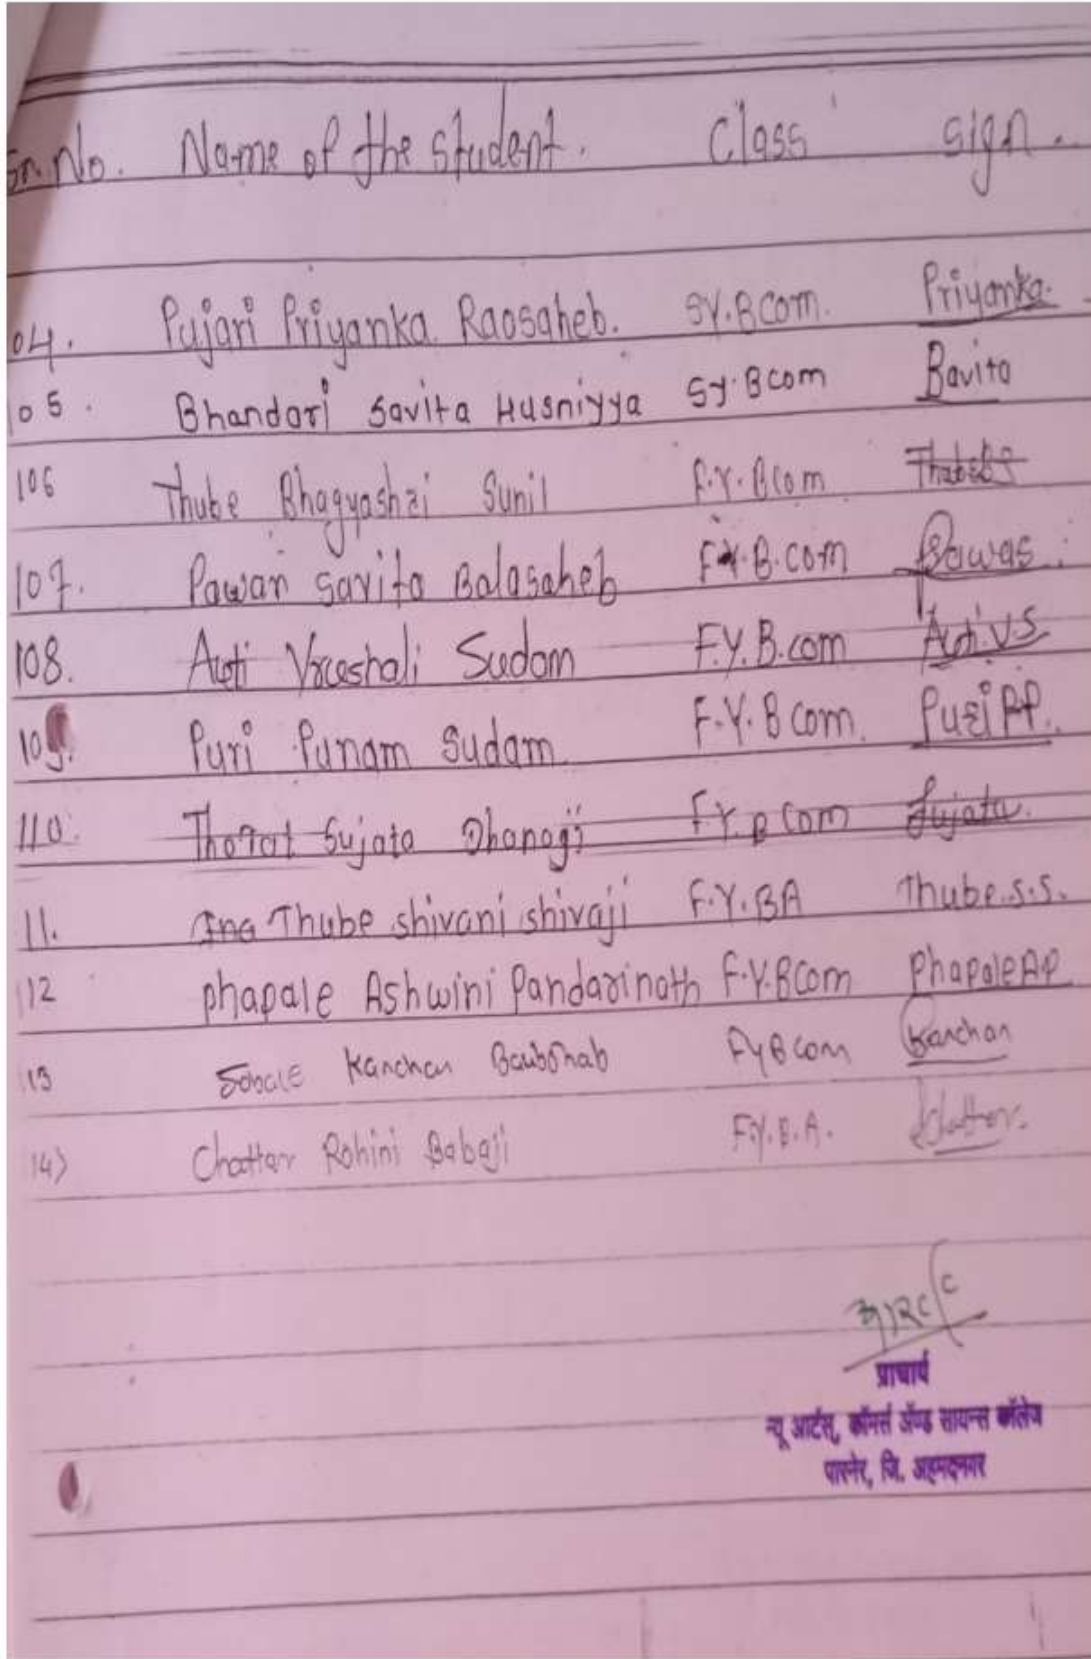 Sr. No. Name of the student. Class sign.
04. Pujari Priyanka Raosaheb. SY.BCOM. Priyanka.
105. Bhandari Savita Husniyya SY.Bcom Bavita
106 Thube Bhagyashri Sunil F.Y.Bcom
107. Pawar Savita Balasaheb F.Y.B.com Pawas
108. Auti Vrushali Sudam F.Y.B.com Auti V.S
109. Puri Punam Sudam F.Y.B com. Puri P.P.
110. Thorat Sujata Dhanaji F.Y.B com Sujata.
11. Thube shivani shivaji F.Y.BA Thube.s.s.
112 phapale Ashwini Pandarinath F.Y.BCom Phapale AP
13 Kanchan FYBcom Kanchan
14) Chattar Rohini Babaji F.Y.B.A.
प्राचार्य
न्यू आर्टस्, कॉमर्स ॲण्ड सायन्स कॉलेज
पारनेर, जि. अहमदनगर